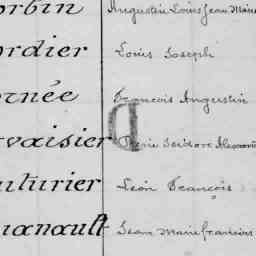 orbin Augustin Louis Jean Marie
ordier Louis Joseph
ornée François Augustin
D
rvaisier Pierre Isidore Alexandre
uturier Léon François
uanault Jean Marie François